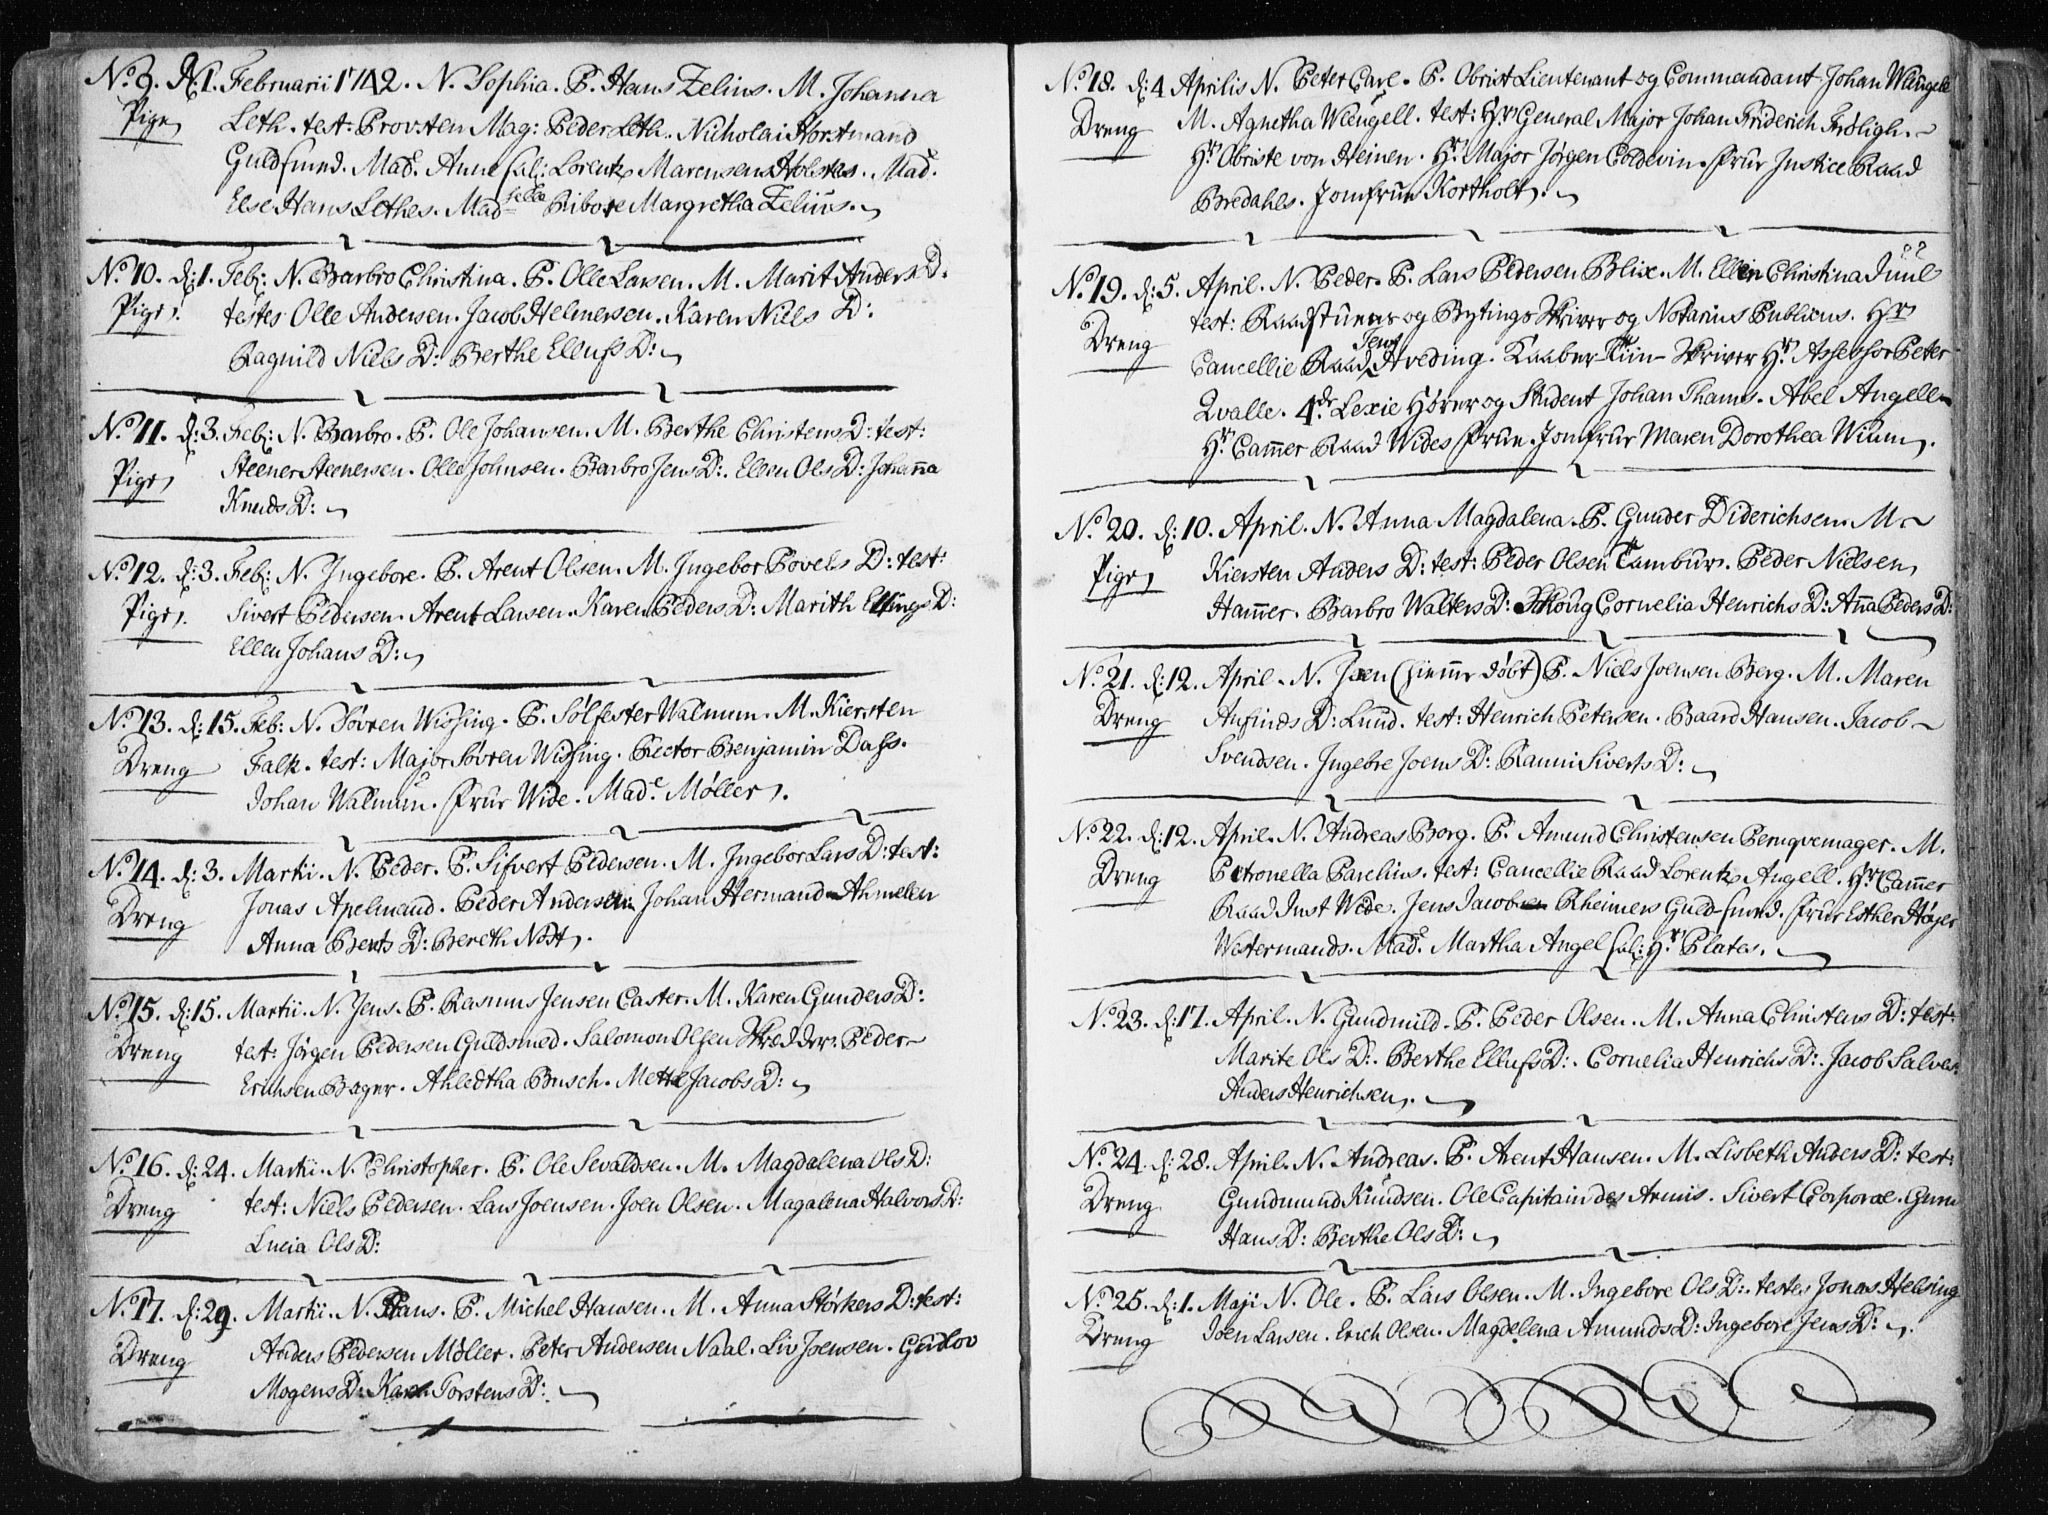 No. 9. d. 1. Februarii 1742. N. Sophia. P. Hans Zelius. M. Johanna
Pige Leth. test: Provsten Mag: Peder Leth. Nicholai Horstmand
Guldsmed. Mad. Anne sal: Lorentz Marensens Holstes. Mad.
Else Hans Lethes. Madselle Ribore Margretha Zelius.
No. 10. d: 1. Feb: N. Barbro Christina. P. Olle Larsen. M. Marit Anders D:
Pige. testes Olle Andersen. Jacob Helmersen. Karen Niels D:
Ragnild Niels D: Berthe Ellufs D:
No. 11. d: 3. Feb: N. Barbro. P. Ole Johansen. M. Berthe Christens D: test:
Pige, Steener Steenersen. Olle Johnsen. Barbro Jens D: Ellen Ols D: Johanna
Knuds D:
No. 12. d: 3. Feb: N. Ingebore. P. Arent Olsen. M. Ingebor Povels D: test:
Pige. Sivert Pedersen. Arent Larsen. Karen Peders D: Marith Ellings D:
Ellen Johans D:
No. 13. d: 15. Feb: N. Søvren Wissing. P. Solfester Walmum. M. Kiersten
Dreng Falk. test: Major Søvren Wissing. Rector Benjamin Dass.
Johan Walmum. Frue Wide. Mad. Møller.
No. 14. d: 3. Martii. N. Peder. P. Sifvert Pedersen. M. Ingebor Lars D: test:
Dreng Jonas Apelmand. Peder Andersen. Johan Hermand Ahmelen
Anna Bents D: Bereth Nøst.
No. 15. d: 15. Martii. N. Jens. P. Rasmus Jensen Caster. M. Karen Gunders D:
Dreng test: Jørgen Pedersen Guldsmed. Salomon Olsen Skredder. Peder
Erichsen Bager. Ahledtha Busch. Mette Jacobs D:
No. 16. d: 24. Martii. N. Christopher. P. Ole Sevaldsen. M. Magdalena Ols D:
Dreng test: Niels Pedersen. Lars Joensen. Joen Olsen. Magalena Halvors D:
Lucia Ols D:
No. 17. d: 29. Martii. N. Hans. P. Michel Hansen. M. Anna Størkers D: test:
Dreng Anders Pedersen Møller. Peter Andersen Naal. Liv Joensen. Gudlov
Mogens D: Torstens D:
No. 18. d: 4 Aprilis N. Peter Carl. P. Obrist Lieutenant og Commandant Johan Wleugell
Dreng M. Agnetha Wleugell. test: Hr General Major Johan Friderich Frøligh.
Hr Obriste von Heinen. Hr. Major Jørgen Coldevin. Frue Justice Raad
Bredahls. Jomfrue Kortholt.
No. 19. d: 5. April. N. Peder. P. Lars Pedersen Blix. M. Ellen Christina Juul
Dreng test: Raadstuens og Bytings Skriver og Notarius Publicus. Hr
Cancellie Raad Jens Hveding. Kaaber Skriver Hr. Assessor Peter
Qvalle. 4de Lexie Hører og Student Johan Thams. Abel Angelle
Hr. Cammer Raad Wides Frue. Jomfrue Maren Dorothea Wium.
No. 20. d: 10. April. N. Anna Magdalena. P. Gunder Diderichsen. M.
Pige, Kiersten Anders D: test: Peder Olsen Tambur. Peder Nielsen
Hammer. Barbro Walters D: Cornelia Henrichs D: Anna Peders D:
No. 21. d: 12. April. N. Joen (hiemme døbt) P. Niels Joensen Berg. M. Maren
Dreng Anfinds D: Lund. test: Henrich Petersen. Baard Hansen. Jacob
Svendsen. Ingebre Joens D: Ranni Siverts D:
No. 22. d: 12. April. N. Andreas Borg. P. Amund Christensen Peruqvemager. M.
Dreng Petronella Parelius. test: Cancellie Raad Lorentz Angell. Hr. Cammer
Raad Just Wide. Jens Jacob Rheimers Guld-smed. Frue Esther Høyer
Westermands. Mad. Martha Angel sal: Hr Plates.
No. 23. d: 17. April. N. Gundmild. P. Peder Olsen. M. Anna Christens D: test:
Marite Ols D: Berthe Ellufs D: Cornelia Henrichs D: Jacob Salves:
Anders Henrichsen.
No. 24. d: 28. April. N. Andreas. P. Arent Hansen. M. Lisbeth Anders D: test:
Dreng Gundmund Knudsen. Ole Capitain des Armis. Sivert Corporal. Guru
Hans D: Berthe Ols D:
No. 25. d: 1. Maji N. Ole. P. Lars Olsen. M. Ingebore Ols D: testes Jonas Helsing
Dreng Joen Larsen. Erich Olsen. Magdelena Amunds D: Ingebore Jens D: